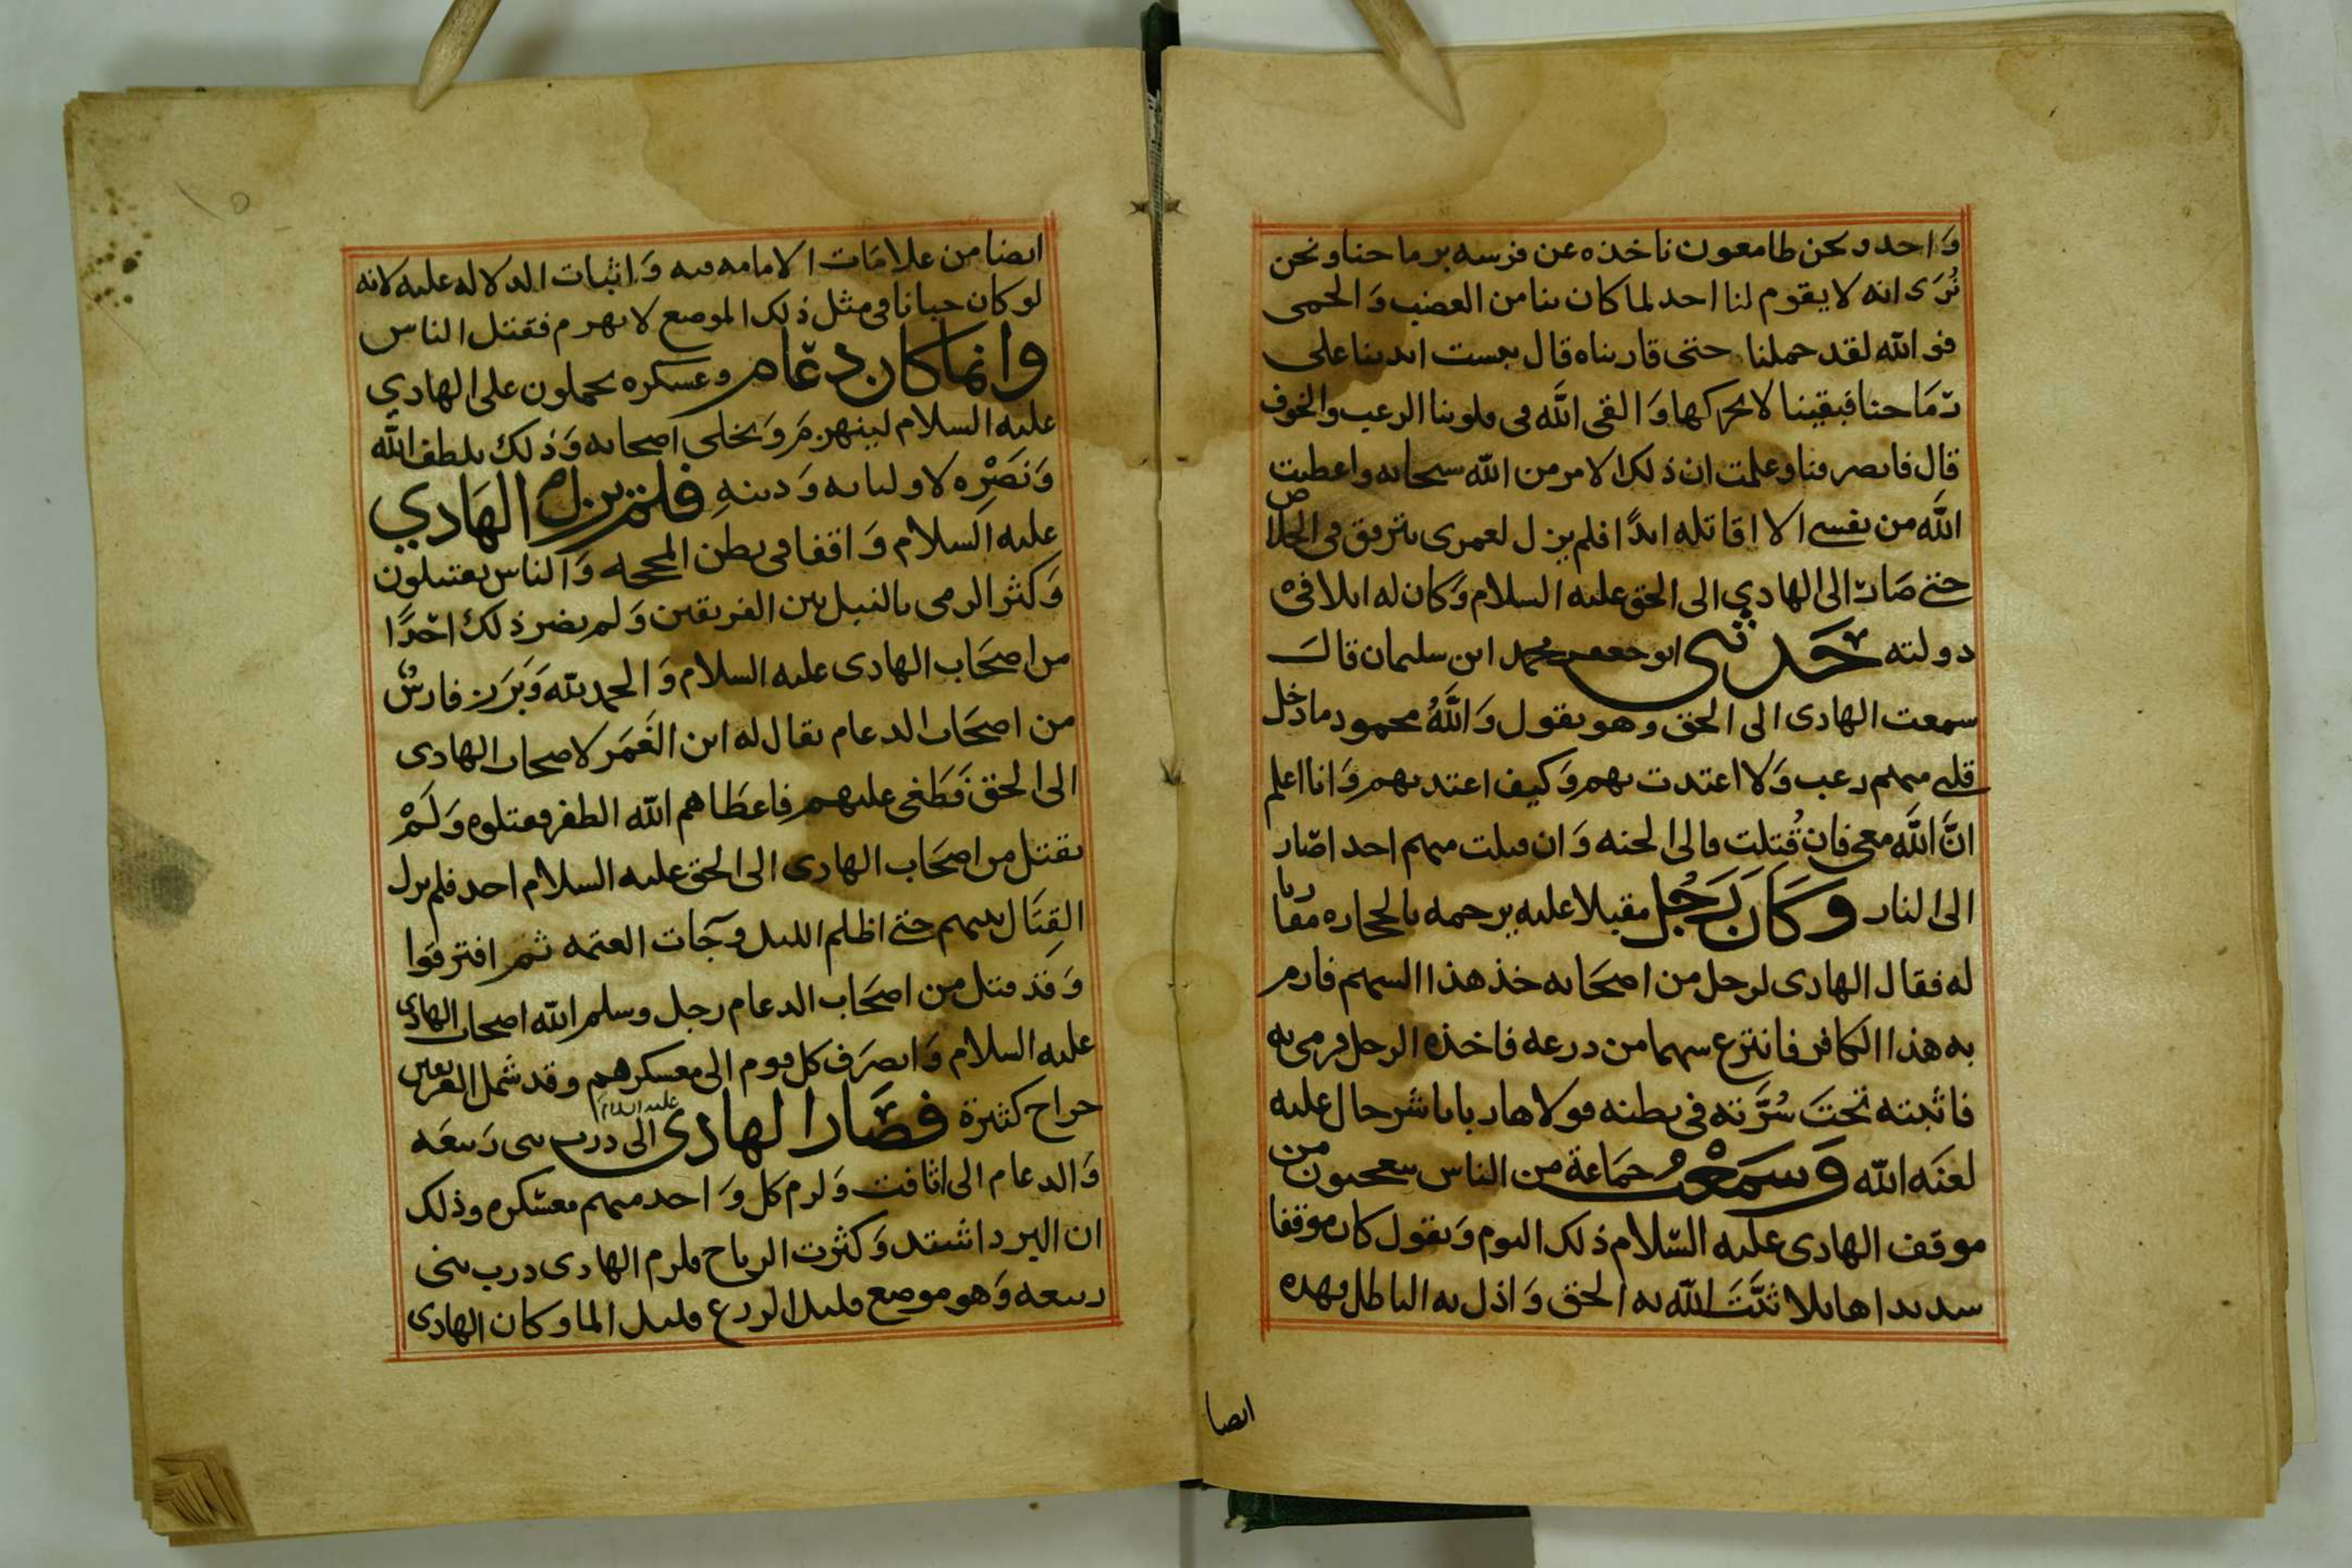 واحد ونحن طامعون ناخذه عن فرسه برماحنا ونحن
نُرَى انه لا يقوم لنا احد لما كان بنا من الغضب وَالحمى
فو الله لقد حملنا حتى قاربناه قال يبست ايدينا على
رمَاحنا فبقينا لا نحركها وَالقى الله في قلوبنا الرعب والخوف
قال فانصرفنا وعلمت ان ذلك الامر من الله سبحانه واعطيت
الله من نفسي الا اقاتله ابدًا فلم يزل لعمري يترفق في الخلاص
حتى صَار الى الهادي الى الحق عليه السلام وَكان له ابلا في
دولته حَدثني ابو جعفر محمد ابن سليمان قال
سمعت الهادى الى الحق وهو يقول وَاللهُ محمود ما دخل
قلبي منهم رعب وَلا اعتدت بهم وَكيف اعتد بهم وَانا اعلم
انَّ الله معي فان قُتلت فالى الجنه وَان قتلت منهم احد اصَار
الى النار وكَان رَجُل مقبلا عليه يرجمه بالحجاره مقاربا
له فقال الهادى لرجل من اصحَابه خذ هذا السهم فارم
به هذا الكافر فانتزع سهما من درعه فاخذه الرجل فرمى به
فاثبته تحتَ سُرَّته في بطنه فولا هاربا باشر حال عليه
لعنَه الله وَسمعْتُ جمَاعة من الناس يتعجبون من
موقف الهادى عليه السّلام ذلك اليوم وَيقول كان موقفا
سديدا هايلا ثبَّتَ الله به الحق وَاذل به الباطل فهذه
ايضا
ايضا من علامَات الامامه فيه وَاثبات الدلاله عليه لانه
لو كان جبانا في مثل ذلك الموضع لانهرم فقتل الناس
وانما كان دعَام وعسكره يحملون على الهادي
عليه السلام لينهرمَ وَيخلى اصحابه وَذلك بلطف الله
وَنَصْرِه لاوليائه وَدينهِ فلم يزل الهَادي
عليه السلام وَاقفا في بطن المحجه وَالناس يقتتلون
وَكثر الرمي بالنبل بين الفريقين وَلم يضر ذلك احَدًا
من اصحَاب الهادى عليه السلام وَالحمد لله وَبَرَز فارسٌ
من اصحَاب الدعام يقال له ابن الغَمَر لاصحاب الهادى
الى الحق فَطَغى عليهم فاعطَاهم الله الظفر فقتلوه وَلَمْ
يقتل من اصحَاب الهادى الى الحق عليه السلام احد فلم يزل
القِتَال بينهم حتى اظلم الليل وجَات العتمه ثم افترقوا
وَقد قتل من اصحَاب الدعام رجل وسلم الله اصحاب الهادى
عليه السلام وَانصرَف كل قوم الى معسكرهم وقد شمل الفريقين
جراح كثيرة فصَار الهادى عليه السلام الى درب بني رَبيعَه
وَالدعام الى اثافت وَلزم كل وَاحد منهم معسّكره وذلك
ان البرد اشتد وَكثرت الرياح فلزم الهادى درب بني
ربيعه وَهو موضع قليل الزرع قليل الما وكان الهادى